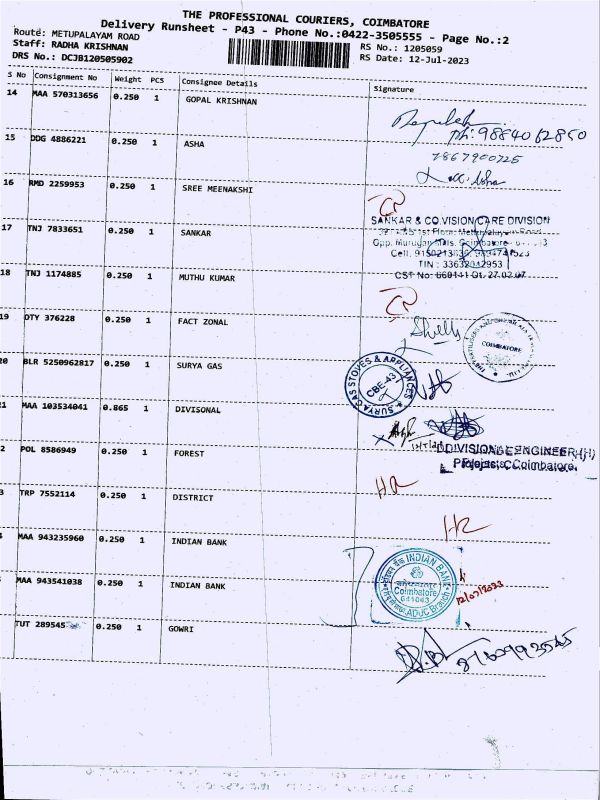 THE PROFESSIONAL COURIERS, COIMBATORE
Delivery Runsheet - P43 - Phone No.:0422-3505555 - Page No.:2
Route: METUPALAYAM ROAD
Staff: RADHA KRISHNAN
RS No.: 1205059
DRS No.: DCJB120505902
RS Date: 12-Jul-2023
S No Consignment No Weight PCS Consignee Details Signature
14 MAA 570313656 0.250 1 GOPAL KRISHNAN
ph: 9884062850
15 DDG 4886221 0.250 1 ASHA
7867900725
16 RMD 2259953 0.250 1 SREE MEENAKSHI
CR
SANKAR & CO.VISION CARE DIVISION
17 TNJ 7833651 0.250 1 SANKAR
Opp. Murugan Mills, Coimbatore
Cell:
TIN : 33632042953
18 TNJ 1174885 0.250 1 MUTHU KUMAR
CST No: 669141 Dt. 27.02.07
CR
19 DTY 376228 0.250 1 FACT ZONAL
Shelly
COIMBATORE
20 BLR 5250962817 0.250 1 SURYA GAS
SURYA GAS STOVES & APPLIANCES
CBE-43
1 MAA 103534041 0.865 1 DIVISONAL
DIVISIONAL ENGINEER (H)
Projects, Coimbatore.
2 POL 8586949 0.250 1 FOREST
3 TRP 7552114 0.250 1 DISTRICT
4 MAA 943235960 0.250 1 INDIAN BANK
INDIAN BANK
Coimbatore
641043
ADUC Branch
MAA 943541038 0.250 1 INDIAN BANK
12/07/2023
TUT 289545 0.250 1 GOWRI